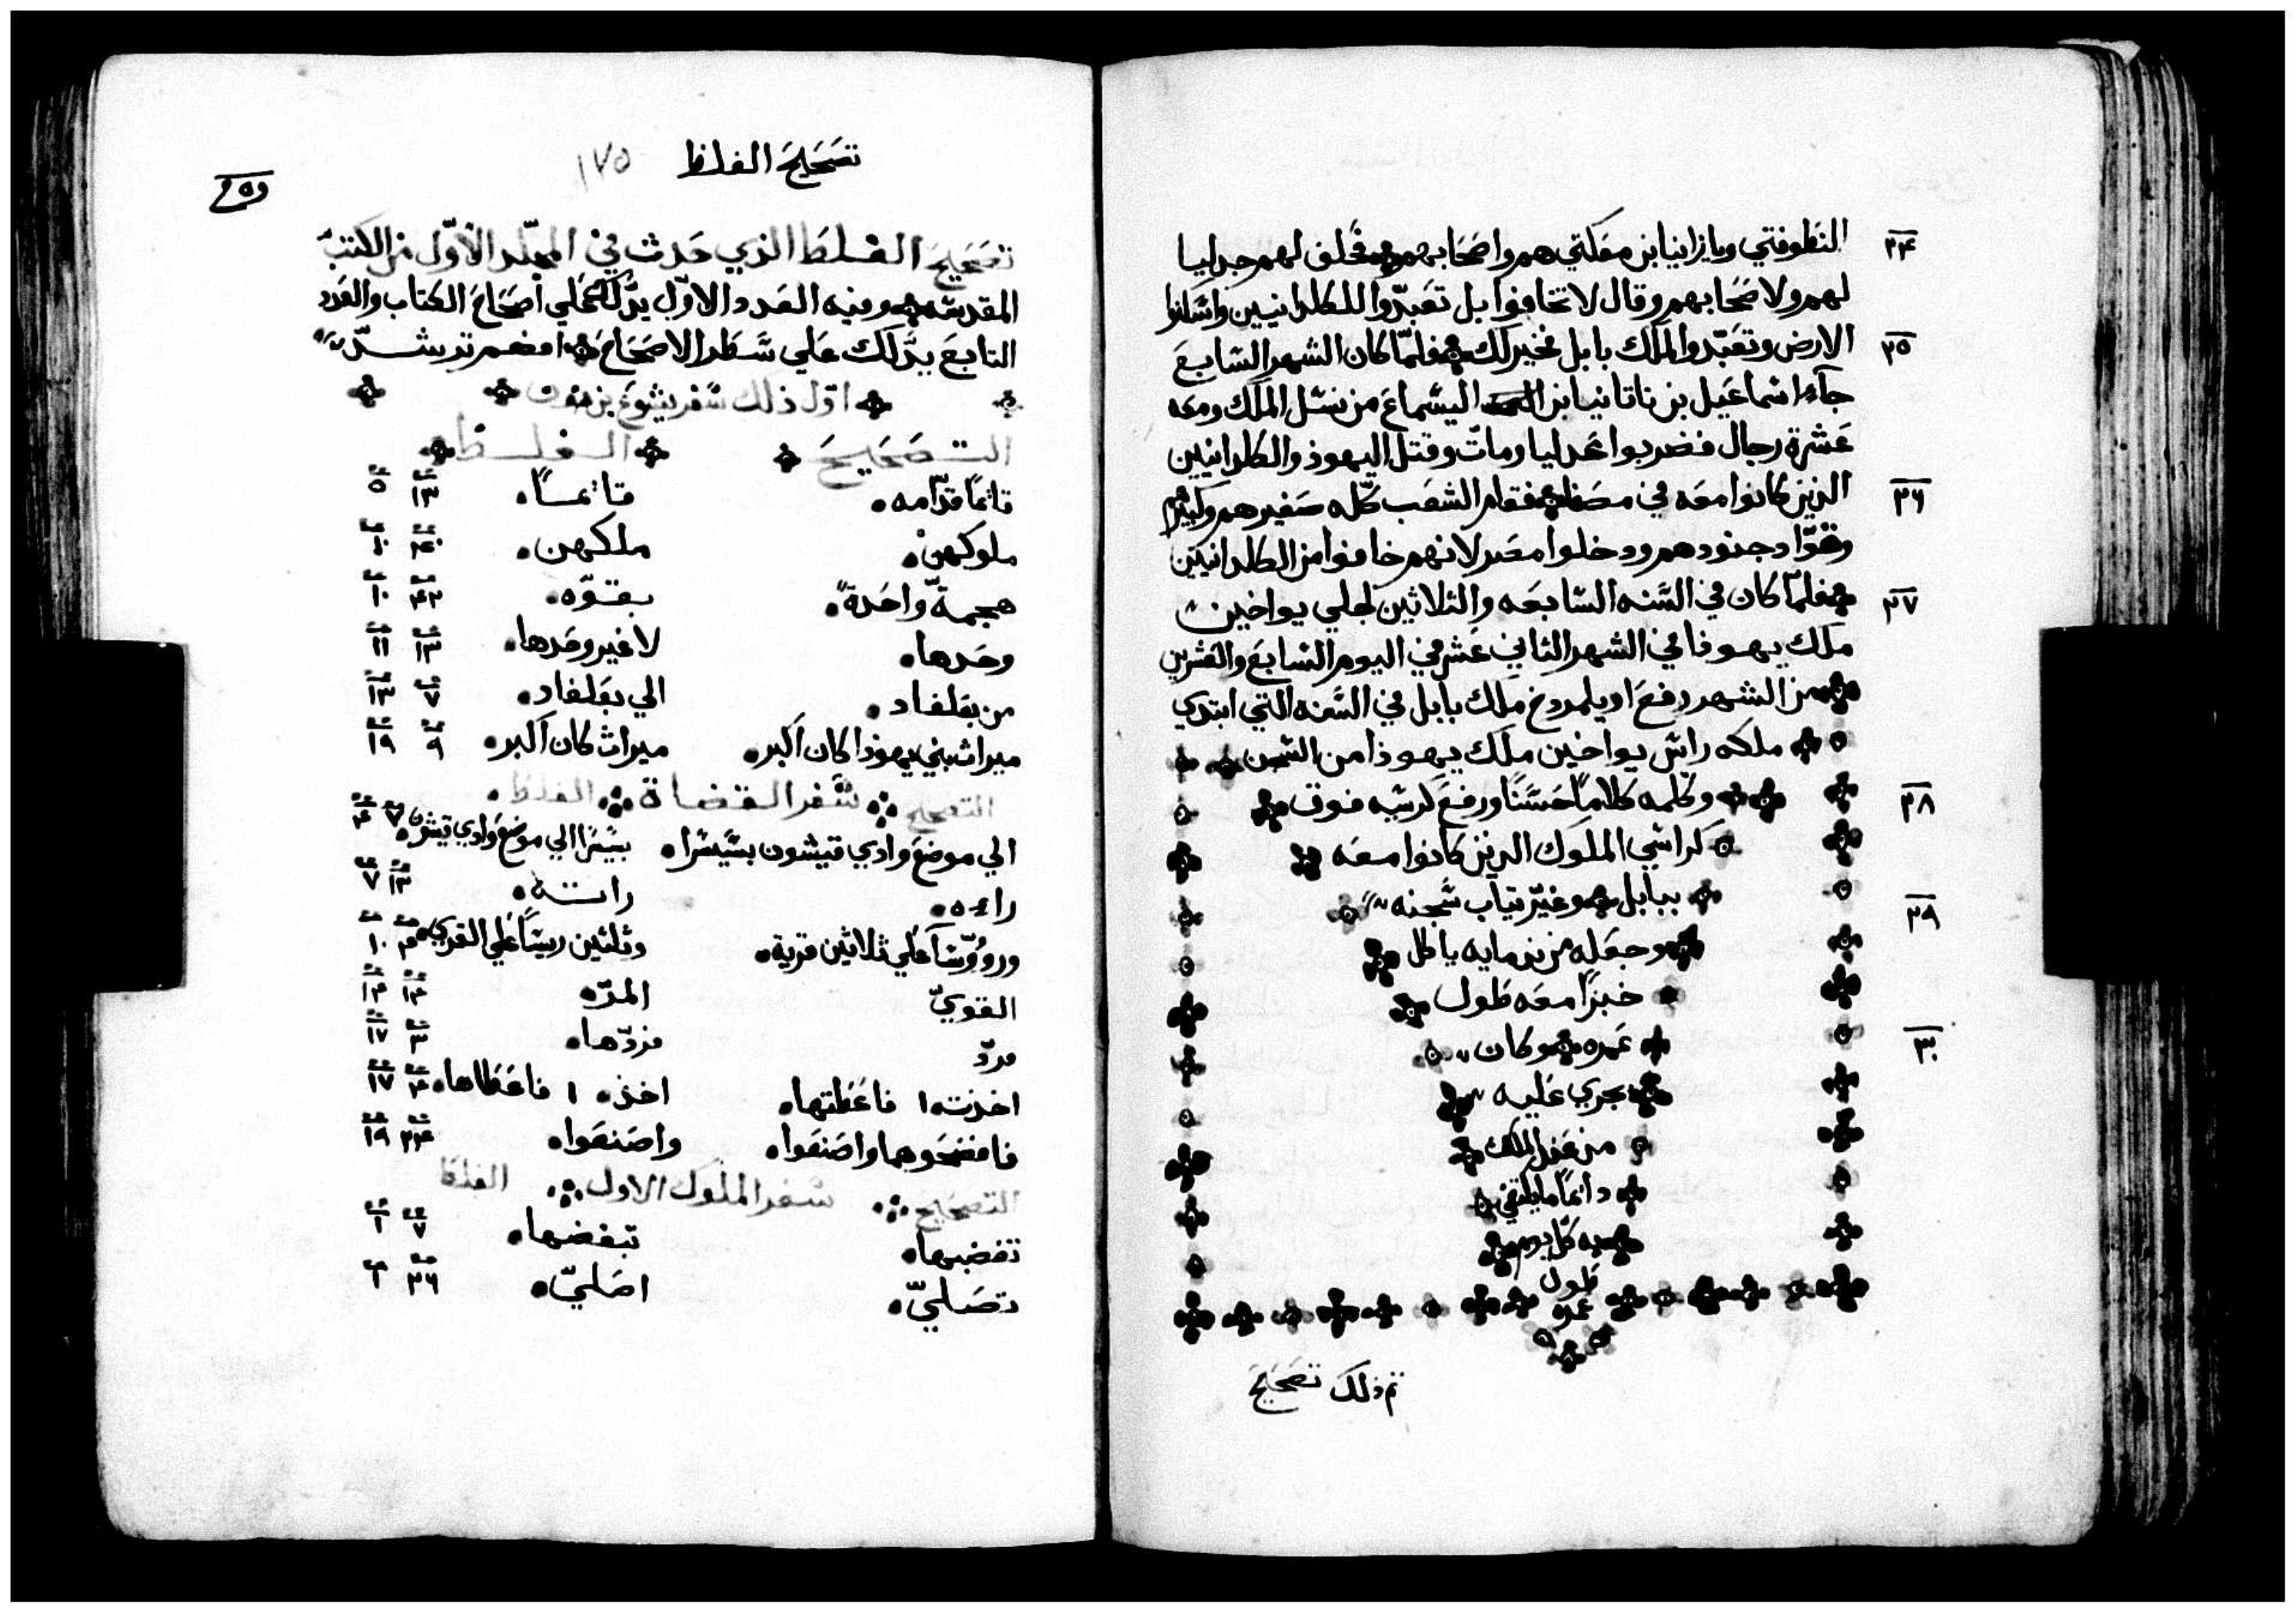 ٢٤ النطوفتي ويازانيا بن معكتي هم واصحابهم فحلف لهم جدليا
لهم ولاصحابهم وقال لا تخافوا بل تعبدوا للكلدانيين واسكنوا
٢٥ الارض وتعبدوا لملك بابل فخير لكم فلما كان الشهر السابع
جاء اسماعيل بن ناتانيا بن اليسماع من نسل الملك ومعه
عشرة رجال فضربوا غدليا ومات وقتل اليهوذ والكلدانيين
٢٦ الذين كانوا معه في مصفا فقام الشعب كله صغيرهم وكبيرهم
وقواد جنودهم ودخلوا مصر لانهم خافوا من الكلدانيين
٢٧ فلما كان في السنه السابعه والثلاثين لجلي يواخين
ملك يهوذا في الشهر الثاني عشر في اليوم السابع والعشرين
من الشهر رفع اويلمردخ ملك بابل في السنه التي ابتدي
ملكه راس يواخين ملك يهوذا من السجن
٢٨ وكلمه كلاماً حسناً ورفع كرسيه فوق
كراسي الملوك الذين كانوا معه
٢٩ ببابل وغير تياب سجنه
وجعله من ندمايه ياكل
خبزاً معه طول
٣٠ عمره وكان
يجري عليه
من عند الملك
دائماً ما يكتفي
به كل يوم
طول
عمره
تم ذلك تصحيح
تصحيح الغلط ١٧٥
تصحيح الغلط الذي حدث في المجلد الاول من الكتب
المقدسه وفيه العدد الاول يدلك علي اصحاح الكتاب والعدد
التابع يدلك علي سطر الاصحاح افهم ترشد
اول ذلك سفر يشوع بن نون
التصحيح الغلط
قائماً قدامه قائماً ١٣ ٥
ملوكهن ملكهن ٤٠ ١٠
هجمة واحدة بقوه ٤٢ ١٠
وحدها لا غير وحدها ١٣ ١١
من بعلغاد الي بعلغاد ٧ ١٣
ميراث بني يهوذا كان اكبر ميراث كان اكبر ٩ ١٩
التصحيح سفر القضاة الغلط
الي موضع وادي قيشون بسيسرا بسيسرا الي موضع وادي قيشون ٧ ٤
راءه راته ١٣ ٧
ورووساً علي ثلاثين قرية وثلثين ريساً علي القري ٤ ١٠
القوي المره ١٤ ١٤
فرد فردها ٣ ١٧
اخذت ا فاعطتها اخذ ا فاعطاها ٤ ١٧
فافضحوهما واصنعوا واصنعوا ٢٤ ١٩
التصحيح سفر الملوك الاول الغلط
تغضبها تبغضها ٧ ١
تصلي اصلي ٢٦ ١